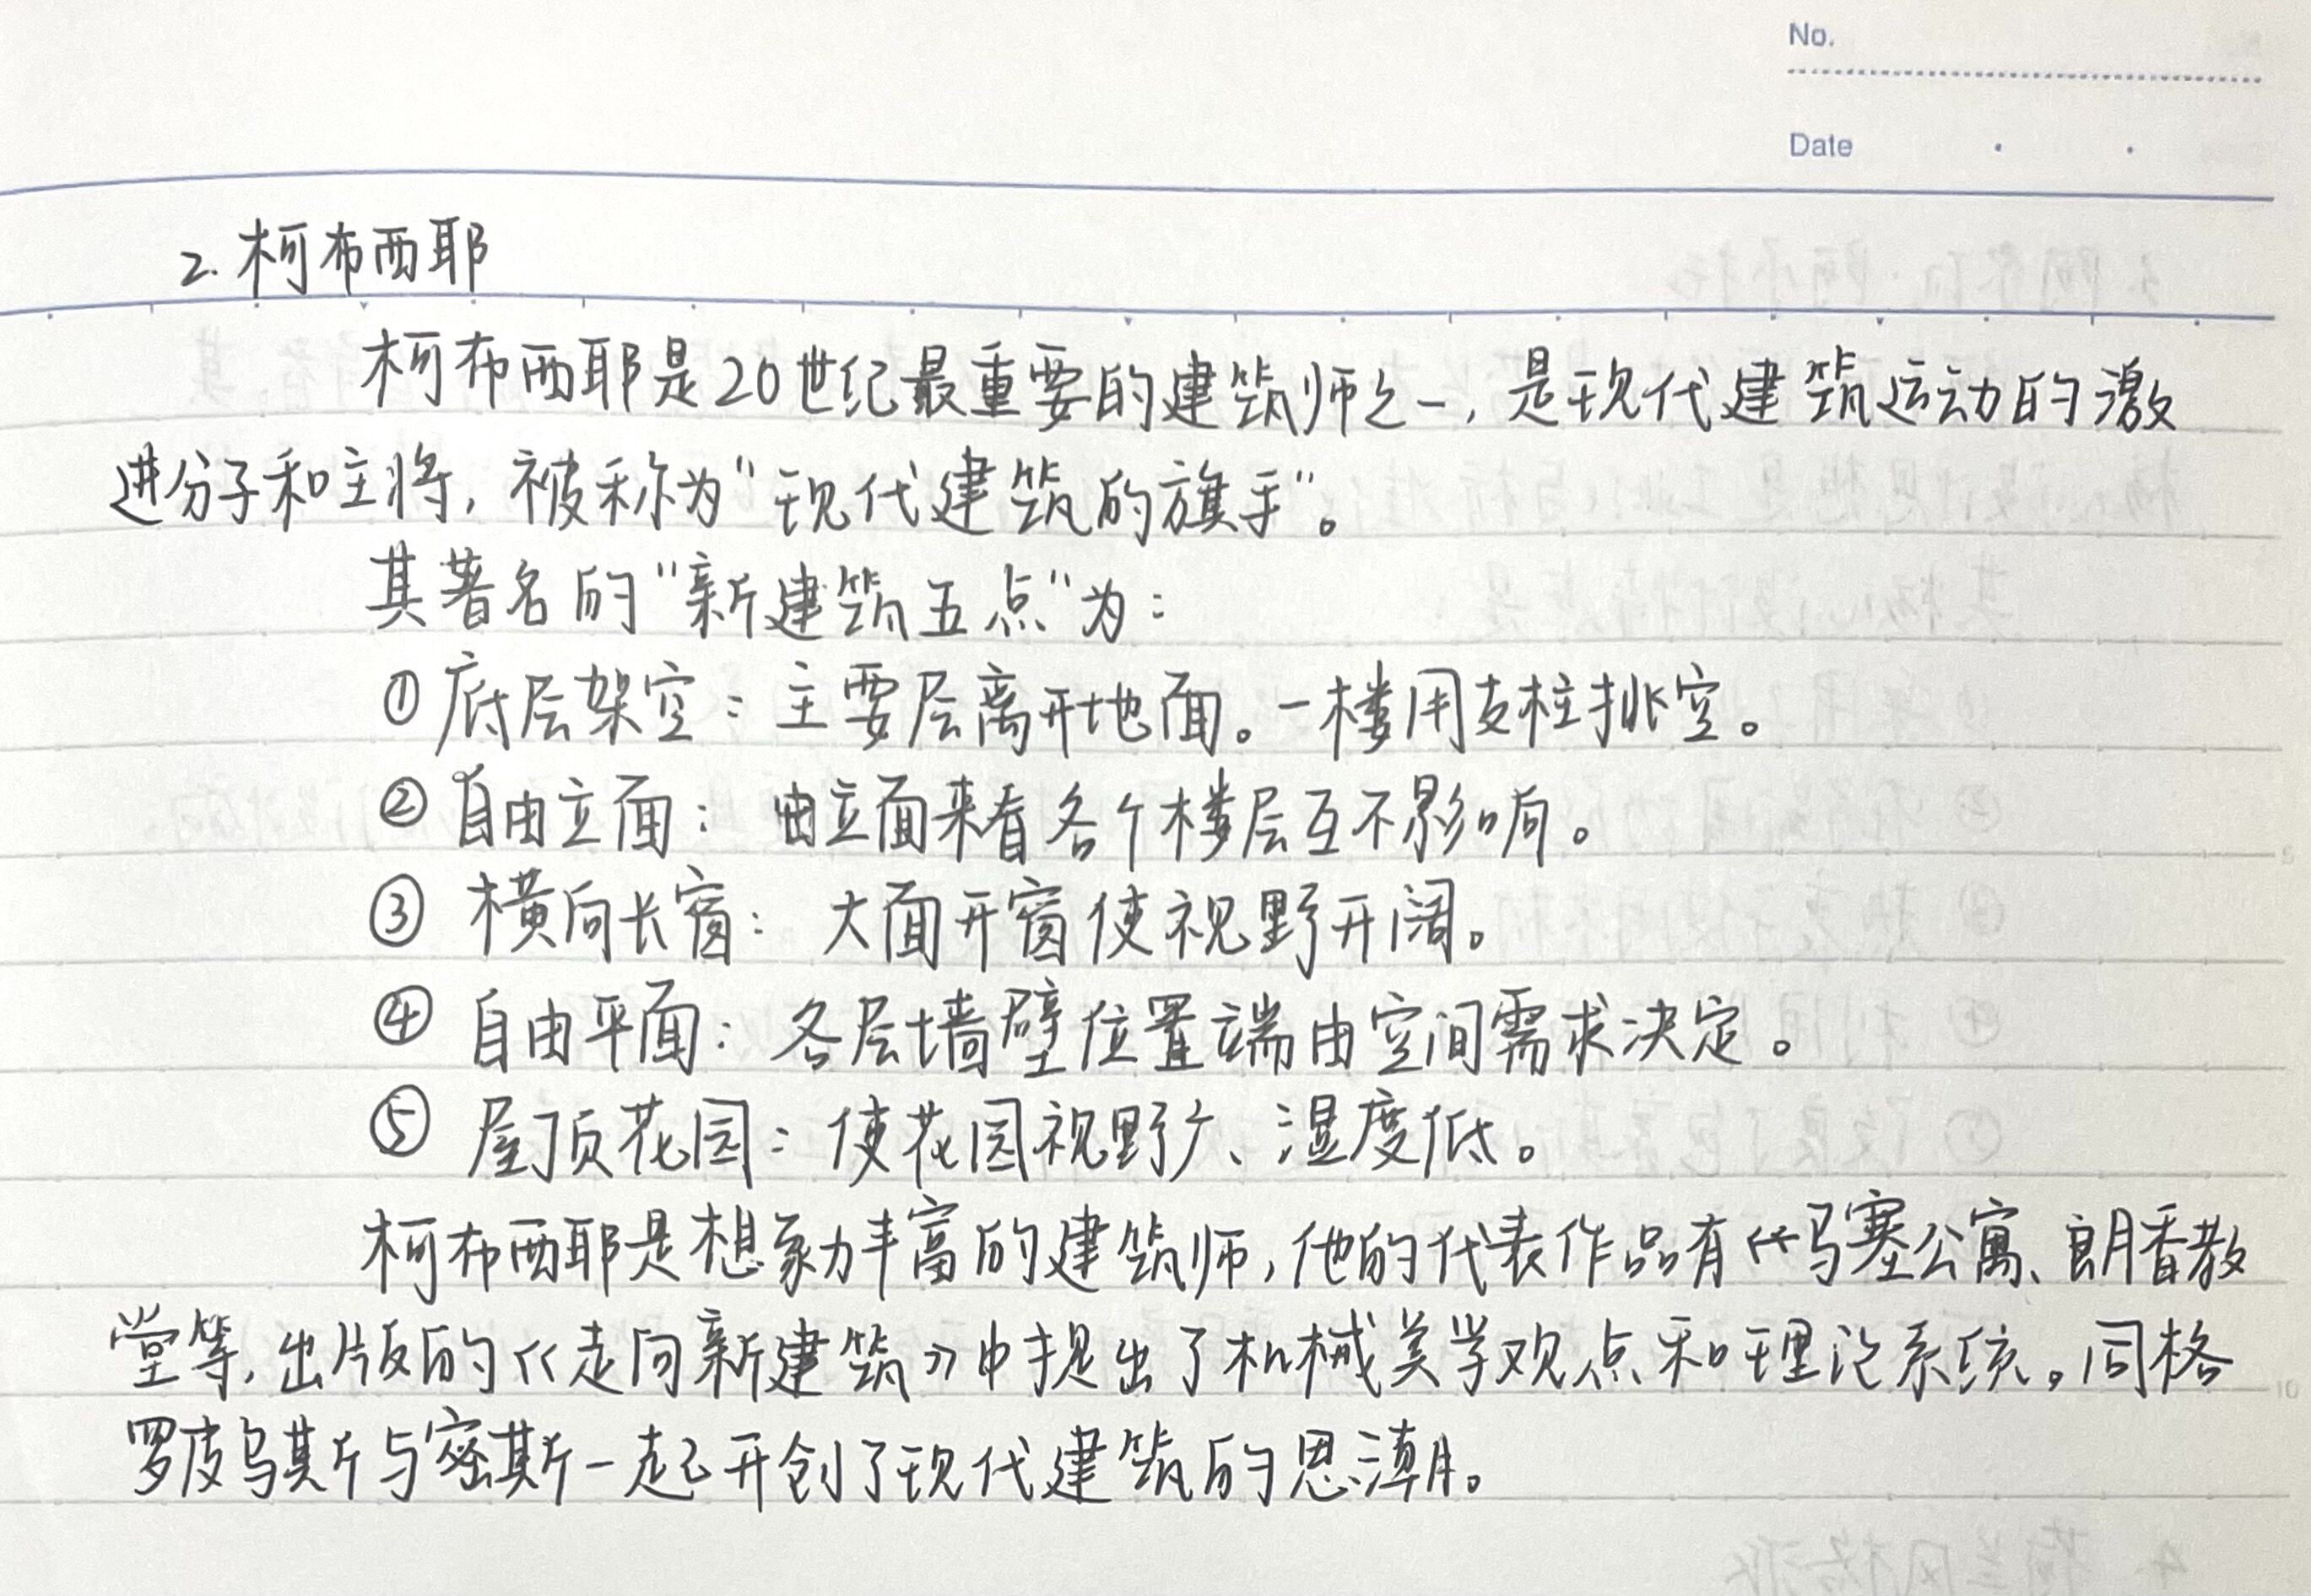 No.
Date
2. 柯布西耶
柯布西耶是20世纪最重要的建筑师之一, 是现代建筑运动的激
进分子和主将, 被称为"现代建筑的旗手"。
其著名的"新建筑五点"为:
①底层架空: 主要层离开地面。一楼用支柱挑空。
② 自由立面: 由立面来看各个楼层互不影响。
③ 横向长窗: 大面开窗使视野开阔。
④ 自由平面: 各层墙壁位置端由空间需求决定。
⑤ 屋顶花园: 使花园视野广、湿度低。
柯布西耶是想象力丰富的建筑师, 他的代表作品有《马塞公寓、朗香教
堂等, 出版的《走向新建筑》中提出了机械美学观点和理论系统。同格
罗皮乌斯与密斯一起开创了现代建筑的思潮。
5
10